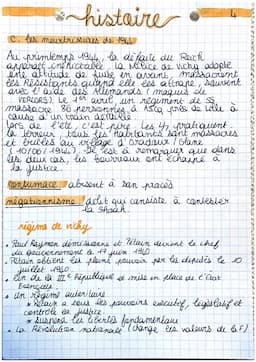 histoire
4
C. les meurtrissures de 1944
Au printemps 1944, la défaite du Reich
apparaît inéluctable. la Milice de Vichy adopte
une attitude de fuite en avant, massacrant
les Résistants quand elle les attrape, souvent
avec l'aide des Allemands (maquis de
VERCORS). Le 1er avril, un régiment de SS
massacre 86 personnes à Ascq près de Lille à
cause d'un train
Lors de l'été, c'est pire les
la terreur: tous les habitants sont massacrés
et brûlés au village d'Oradour/Glane
(10/06/1944). De est à remarquer que dans
les deux cas, les bourreaux ont échappé à
la justice.
contumace: absent à son procès
négationnisme: délit qui consiste à contester
la Shoah.
régime de vichy
• Paul Reynon démissionne et Pétain devient le chef
du gouvernement le 17 juin 1940
• Pétain obtient les pleins pouvoir par les députés le 10
juillet 1940
• fin de la IIIe République et mise en place de l'état
français
• Un régime autoritaire
• Pétain a sous les pouvoirs executif, législatif et
contrôle la justice.
• Suspend les libertés fondamentaux
• la Révolution nationale (change les valeurs de la F)